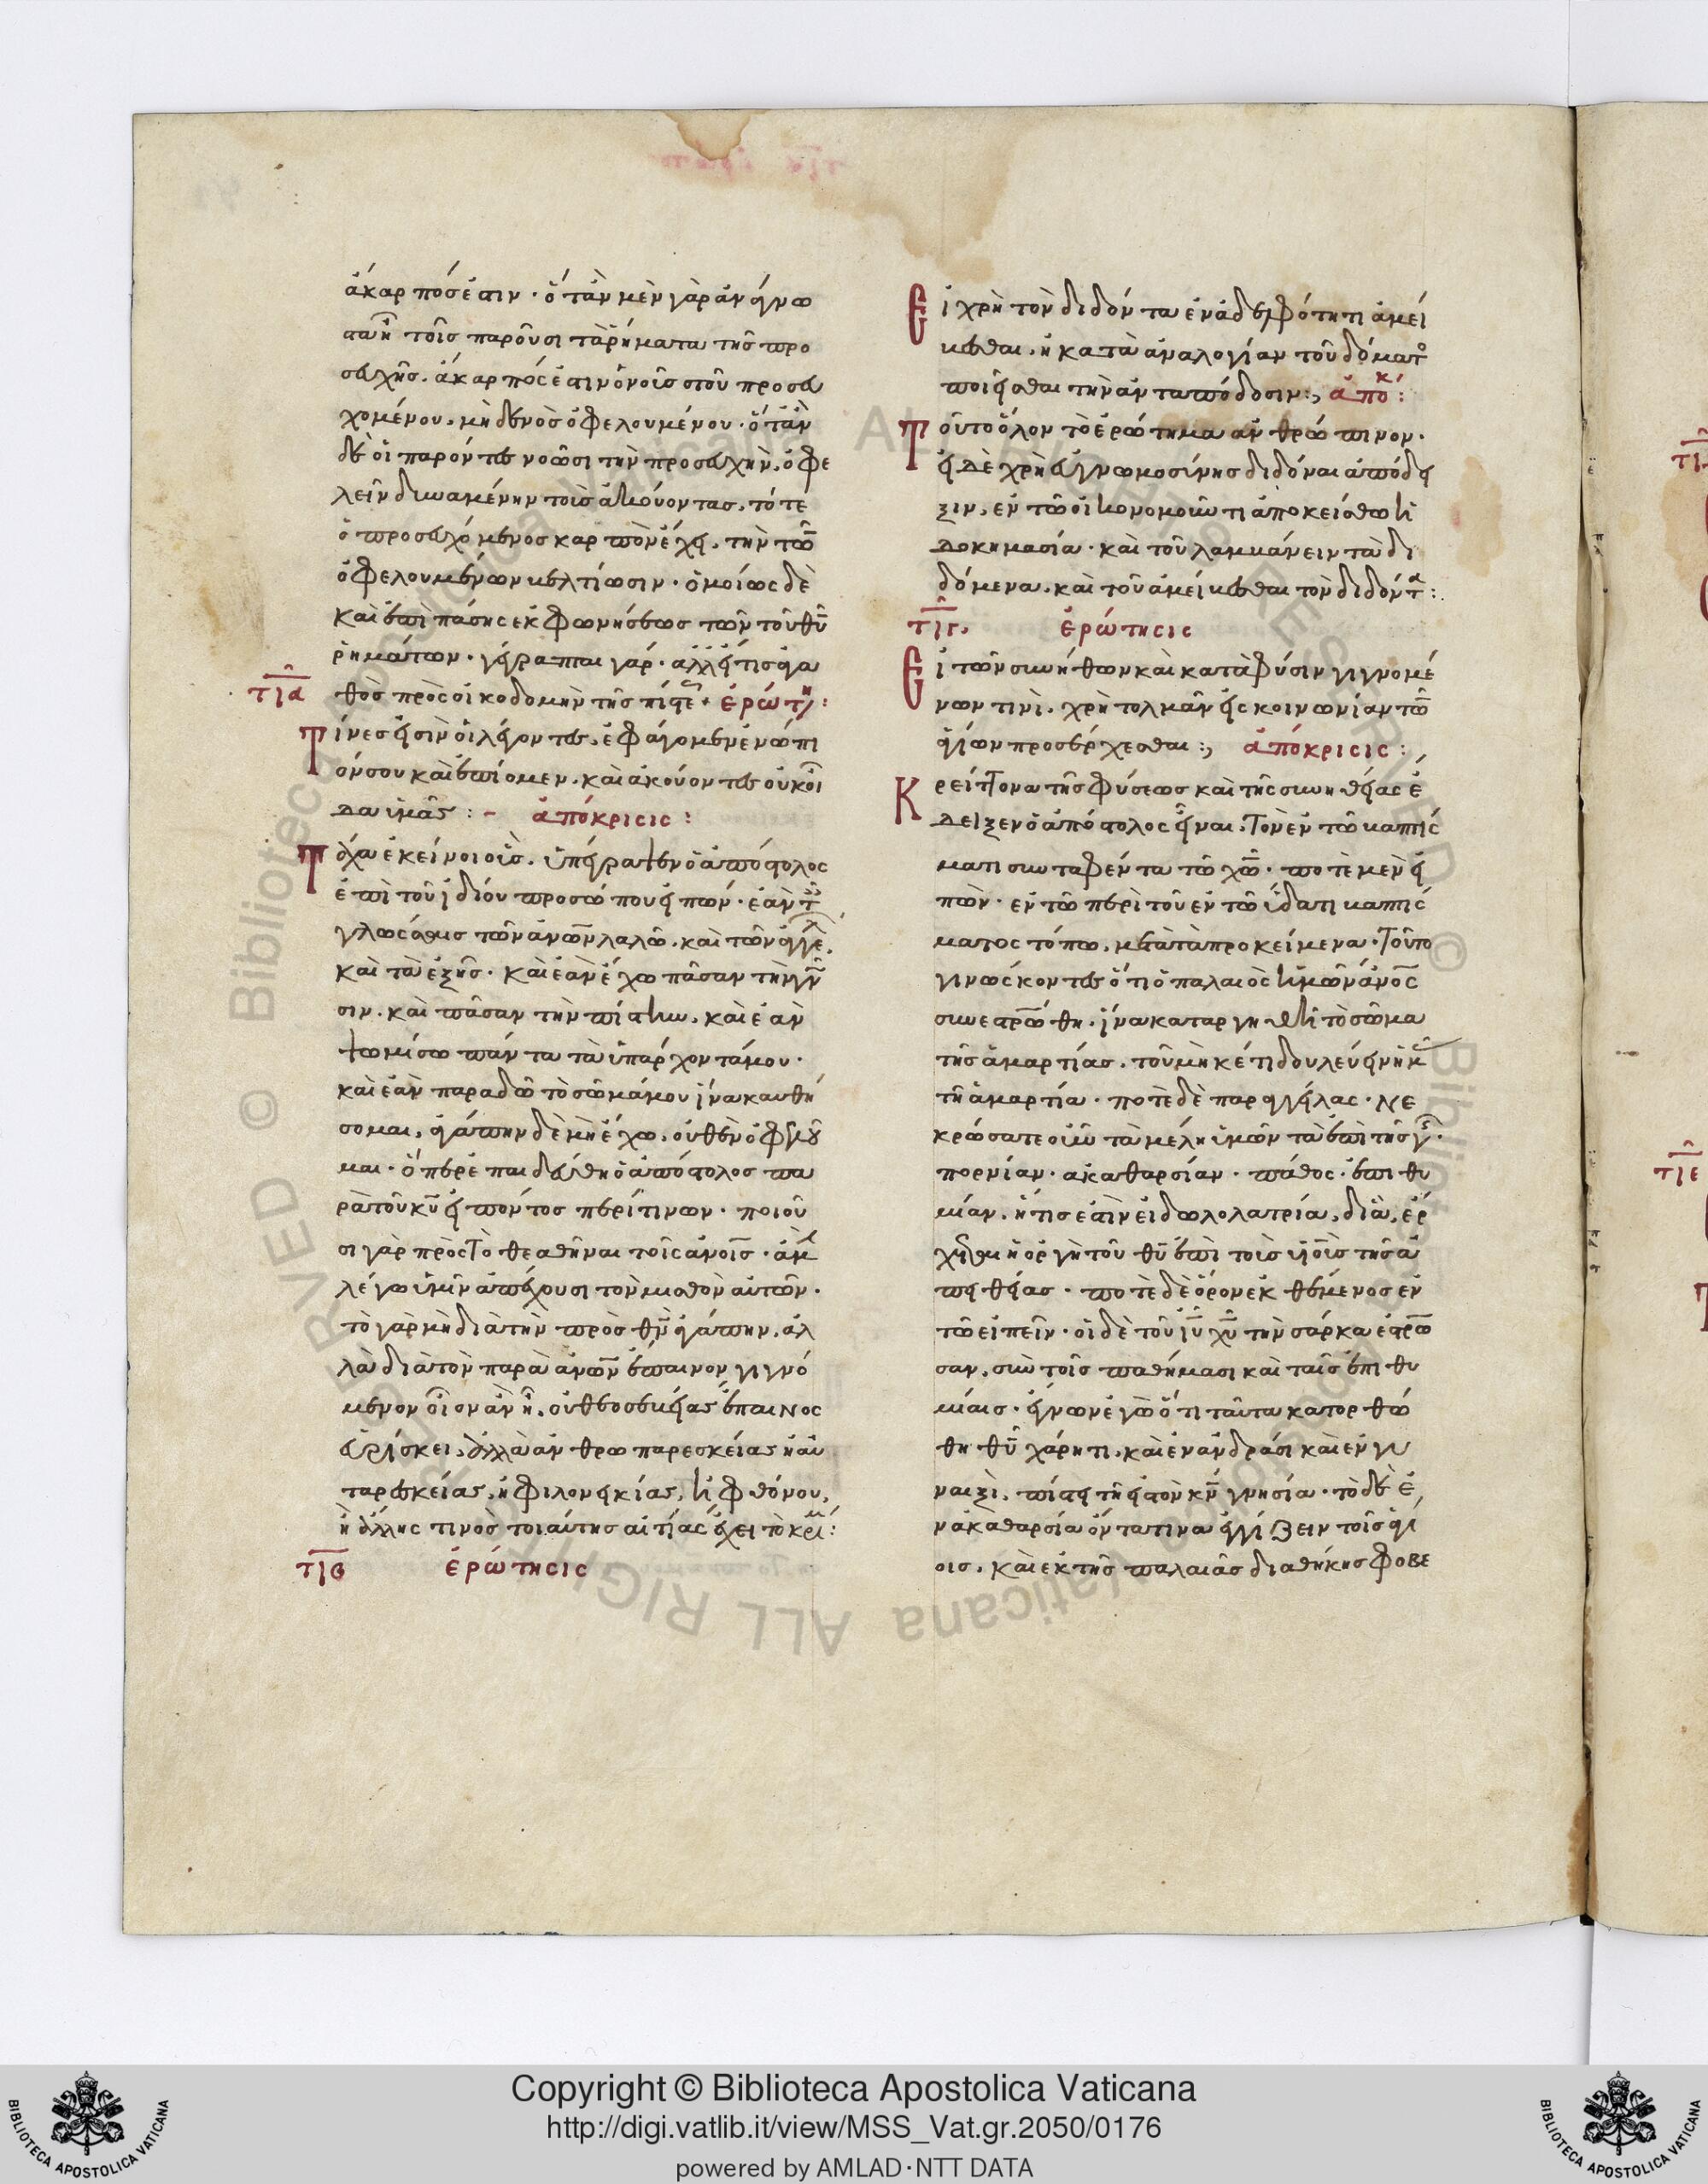 ἄκαρπός ἐστιν · ὅταν μὲν γὰρ ἄγνω
στα ᾖ τοῖς παροῦσι τὰ ῥήματα τῆς προ
σευχῆς · ἄκαρπός ἐστιν ὁ νοῦς τοῦ προσευ
χομένου · μηδενὸς ὀφελουμένου · ὅταν
δὲ οἱ παρόντες νοῶσι τὴν προσευχὴν · ὀφε
λεῖν δυναμένην τοὺς ἀκούοντας · τότε
ὁ προσευχόμενος καρπὸν ἔχει · τὴν τῶν
ὀφελουμένων βελτίωσιν · ὁμοίως δὲ
καὶ ἐπὶ πάσης ἐκφωνήσεως τῶν τοῦ θυ
ῥημάτων · γέγραπται γάρ · ἀλλ εἴ τις ἀγα
τια θὸς πρὸς οἰκοδομὴν τῆς πίστε · ἐρώτη :
Τίνες εἰσὶν οἱ λέγοντες · ἐφάγομεν ἐνώπι
όν σου καὶ ἐπίομεν · καὶ ἀκούοντες οὐκ οἶ
δα ὑμᾶς : – ἀπόκρισις :
Τάχα ἐκεῖνοι οἷς · ὑπέγραψεν ὁ ἀπόστολος
ἐπὶ τοῦ ἰδίου προσώπου εἰπών · ἐὰν τ
γλώσσαις τῶν ἀνων λαλῶ · καὶ τῶν ἀγγε
καὶ τὰ ἑξῆς · καὶ ἐὰν ἔχω πᾶσαν τὴν γν
σιν · καὶ πᾶσαν τὴν πίστιν · καὶ ἐὰν
ψωμίσω πάντα τὰ ὑπάρχοντά μου ·
καὶ ἐὰν παραδῶ τὸ σῶμά μου ἵνα καυθή
σομαι · ἀγάπην δὲ μὴ ἔχω · οὐθὲν ὀφελοῦ
μαι · ὅπερ ἐπαιδεύθη ὁ ἀπόστολος πα
ρὰ τοῦ κυ εἰπόντος περί τινων · ποιοῦ
σι γὰρ πρὸς τὸ θεαθῆναι τοῖς ἀνοις · ἀμ
λέγω ὑμῖν ἀπέχουσι τὸν μισθὸν αὐτῶν ·
τὸ γὰρ μὴ διὰ τὴν πρὸς θν ἀγάπην · ἀλ
λὰ διὰ τὸν παρὰ ἀνων ἔπαινον γιγνό
μενον οἷον ἂν ᾖ · οὐ θεοσεβείας ἔπαινος
εὑρίσκει · ἀλλὰ ἀνθρωπαρεσκείας ἢ αὐ
ταρεσκείας · ἢ φιλονεικίας · ἢ φθόνου ·
ἢ ἄλλης τινὸς τοιαύτης αἰτίας ἔχει τὸ κρί :
τιβ ἐρώτησις
Εἰ χρὴ τὸν διδόντα ἐν ἀδελφότητι ἀμεί
βεσθαι · ἢ κατὰ ἀναλογίαν τοῦ δόματο
ποιεῖσθαι τὴν ἀνταπόδοσιν : , ἀποκ :
Τοῦτο ὅλον τὸ ἐρώτημα ἀνθρώπινον ·
εἰ δὲ χρὴ εὐγνωμοσύνης διδόναι ἀπόδει
ξιν · ἐν τῷ οἰκονομοῦντι ἀποκείσθω ἡ
δοκημασία · καὶ τοῦ λαμβάνειν τὰ δι
δόμενα · καὶ τοῦ ἀμείβεσθαι τὸν διδόντα :
τιγ · ἐρώτησις
Εἰ τῶν συνήθων καὶ κατὰ φύσιν γιγνομέ
νων τινὶ · χρὴ τολμᾶν εἰς κοινωνίαν τῶν
ἁγίων προσέρχεσθαι : , ἀπόκρισις :
Κρείττονα τῆς φύσεως καὶ τῆς συνηθείας ἔ
δειξεν ὁ ἀπόστολος εἶναι · τὸν ἐν τῷ βαπτίσ
ματι συνταφέντα τῷ χω · ποτὲ μὲν εἰ
πὼν · ἐν τῷ περὶ τοῦ ἐν τῷ ὕδατι βαπτίσ
ματος τόπω · μετὰ τὰ προκείμενα · τοῦτο
γινώσκοντες ὅτι ὁ παλαιὸς ἡμῶν ἄνος
συνεστρώθη · ἵνα καταργηθῆ τὸ σῶμα
τῆς ἁμαρτίας · τοῦ μηκέτι δουλεύειν ἡμ
τῆ ἁμαρτία · ποτὲ δὲ παραγγείλας · νε
κρώσατε οὖν τὰ μέλη ὑμῶν τὰ ἐπὶ τῆς γ ·
πορνίαν · ἀκαθαρσίαν · πάθος · ἐπιθυ
μίαν · ἥτις ἐστὶν εἰδωλολατρία · δι ἃ · ἔρ
χεται ἡ ὀργὴ τοῦ θυ ἐπὶ τοὺς υἱοὺς τῆς ἀ
πειθείας · ποτὲ δὲ ὅρον ἐκθέμενος ἐν
τῷ εἰπεῖν · οἱ δὲ τοῦ ιυ χυ τὴν σάρκα ἐστρω
σαν · σὺν τοῖς παθήμασι καὶ ταῖς ἐπιθυ
μίαις · ἔγνων ἐγὼ ὅτι ταῦτα κατορθώ
θη θυ χάρητι · καὶ ἐν ἀνδράσι καὶ ἐν γυ
ναιξὶ · πίστει τῆ εἰς τὸν κν γνησία · τὸ δὲ ἐ
ν ἀκαθαρσία ὄντα τινα ἐγγίζειν τοῖς ἁγί
οις · καὶ ἐκ τῆς παλαιᾶς διαθήκης φοβε
Copyright © Biblioteca Apostolica Vaticana
http://digi.vatlib.it/view/MSS_Vat.gr.2050/0176
powered by AMLAD·NTT DATA
BIBLIOTECA APOSTOLICA VATICANA
BIBLIOTECA APOSTOLICA VATICANA